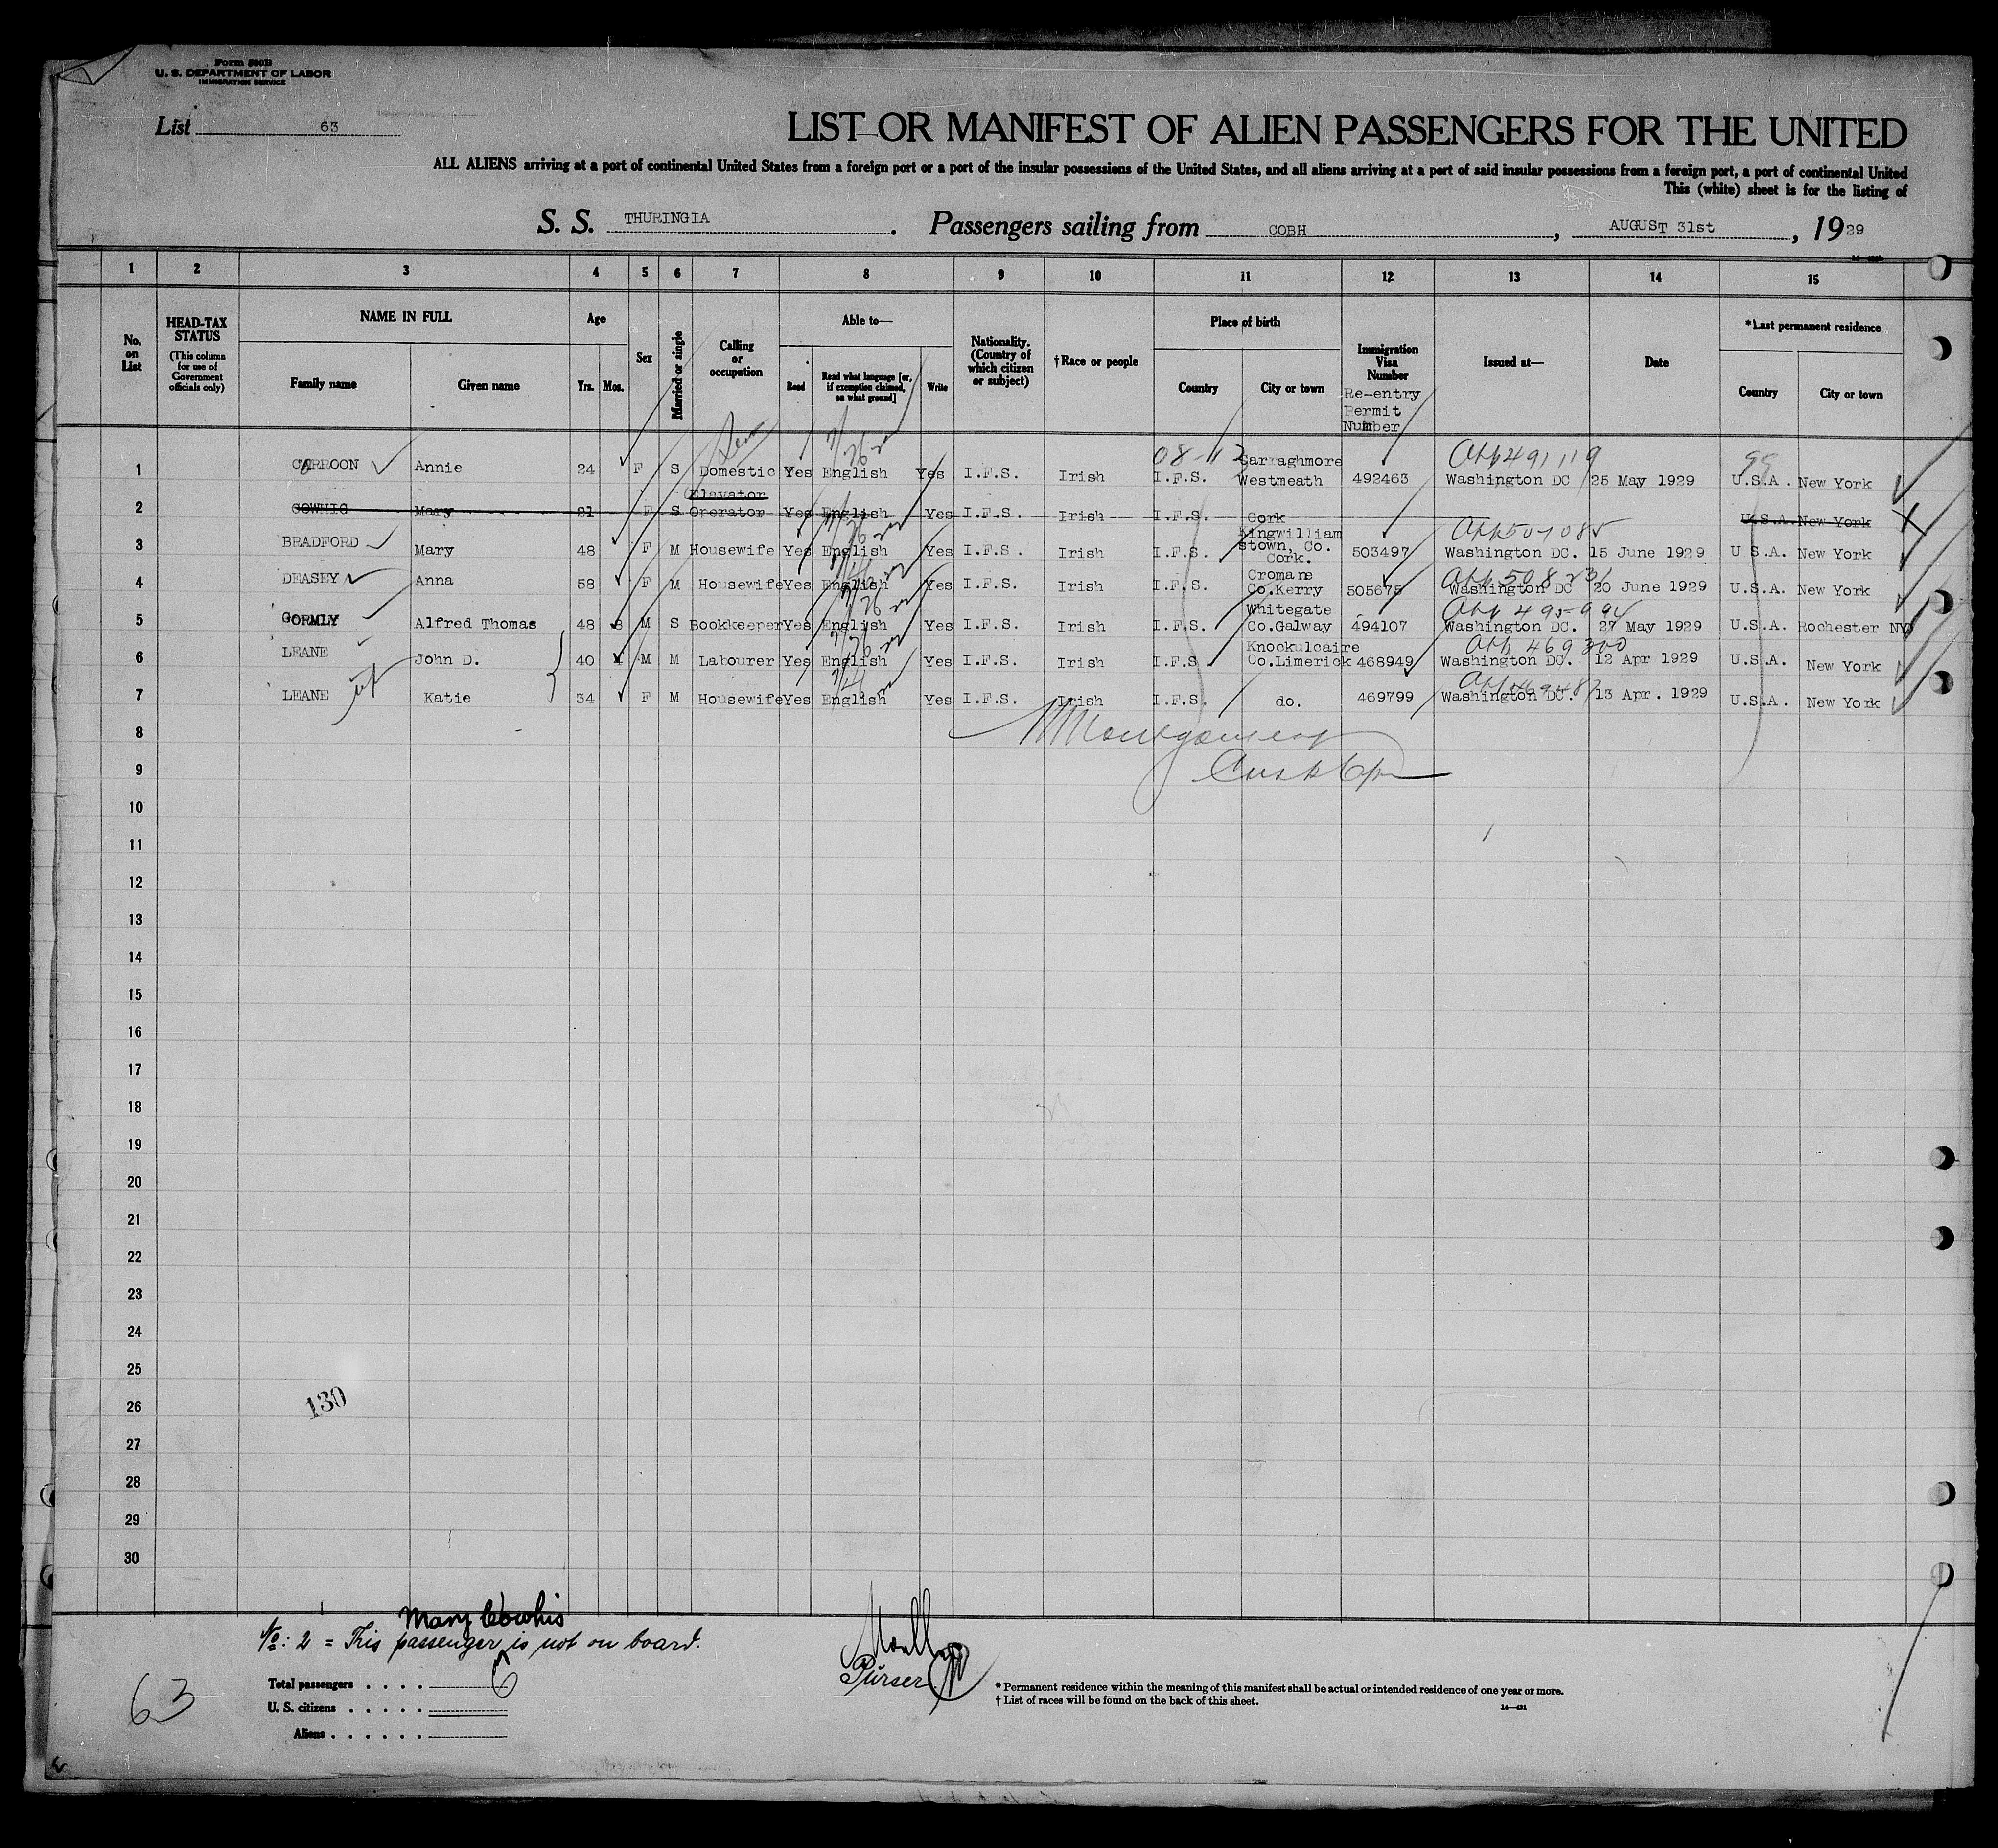 Form 500B
U. S. DEPARTMENT OF LABOR
IMMIGRATION SERVICE
List 63
LIST OR MANIFEST OF ALIEN PASSENGERS FOR THE UNITED
ALL ALIENS arriving at a port of continental United States from a foreign port or a port of the insular possessions of the United States, and all aliens arriving at a port of said insular possessions from a foreign port, a port of continental United
This (white) sheet is for the listing of
S. S. THURINGIA . Passengers sailing from COBH , AUGUST 31st , 1929
1 2 3 4 5 6 7 8 9 10 11 12 13 14 15
No. on List
HEAD-TAX STATUS (This column for use of Government officials only)
NAME IN FULL
Family name Given name
Age
Yrs. Mos.
Sex
Married or single
Calling or occupation
Able to—
Read Read what language [or, if exemption claimed, on what ground] Write
Nationality. (Country of which citizen or subject)
†Race or people
Place of birth
Country City or town
Immigration Visa Number
Re-entry Permit Number
Issued at—
Date
*Last permanent residence
Country City or town
1 CARROON Annie 24 F S Domestic Yes English Yes I.F.S. Irish I.F.S. Garraghmore Westmeath 492463 App 491119 Washington DC 25 May 1929 U.S.A. New York
2 COWHIG Mary 21 F S Elevator Operator Yes English Yes I.F.S. Irish I.F.S. Cork U.S.A. New York
3 BRADFORD Mary 48 F M Housewife Yes English Yes I.F.S. Irish I.F.S. Kingwilliam stown, Co. Cork. 503497 App 507085 Washington DC. 15 June 1929 U S.A. New York
4 DEASEY Anna 58 F M Housewife Yes English Yes I.F.S. Irish I.F.S. Cromane Co.Kerry 505675 Washington DC 20 June 1929 U.S.A. New York
5 GORMLY Alfred Thomas 48 8 M S Bookkeeper Yes English Yes I.F.S. Irish I.F.S. Whitegate Co.Galway 494107 Washington DC. 27 May 1929 U.S.A. Rochester NY
6 LEANE John D. 40 M M Labourer Yes English Yes I.F.S. Irish I.F.S Knockulcaire Co.Limerick 468949 App 469300 Washington DC. 12 Apr 1929 U.S.A. New York
7 LEANE Katie 34 F M Housewife Yes English Yes I.F.S. Irish I.F.S. do. 469799 Washington DC. 13 Apr. 1929 U.S.A. New York
8
9
10
11
12
13
14
15
16
17
18
19
20
21
22
23
24
25
26
27
28
29
30
130
Mary Cowhig
No: 2 = This passenger is not on board.
Purser
63
Total passengers . . . . 6
U. S. citizens . . . . .
Aliens . . . . . .
* Permanent residence within the meaning of this manifest shall be actual or intended residence of one year or more.
† List of races will be found on the back of this sheet.
14—431